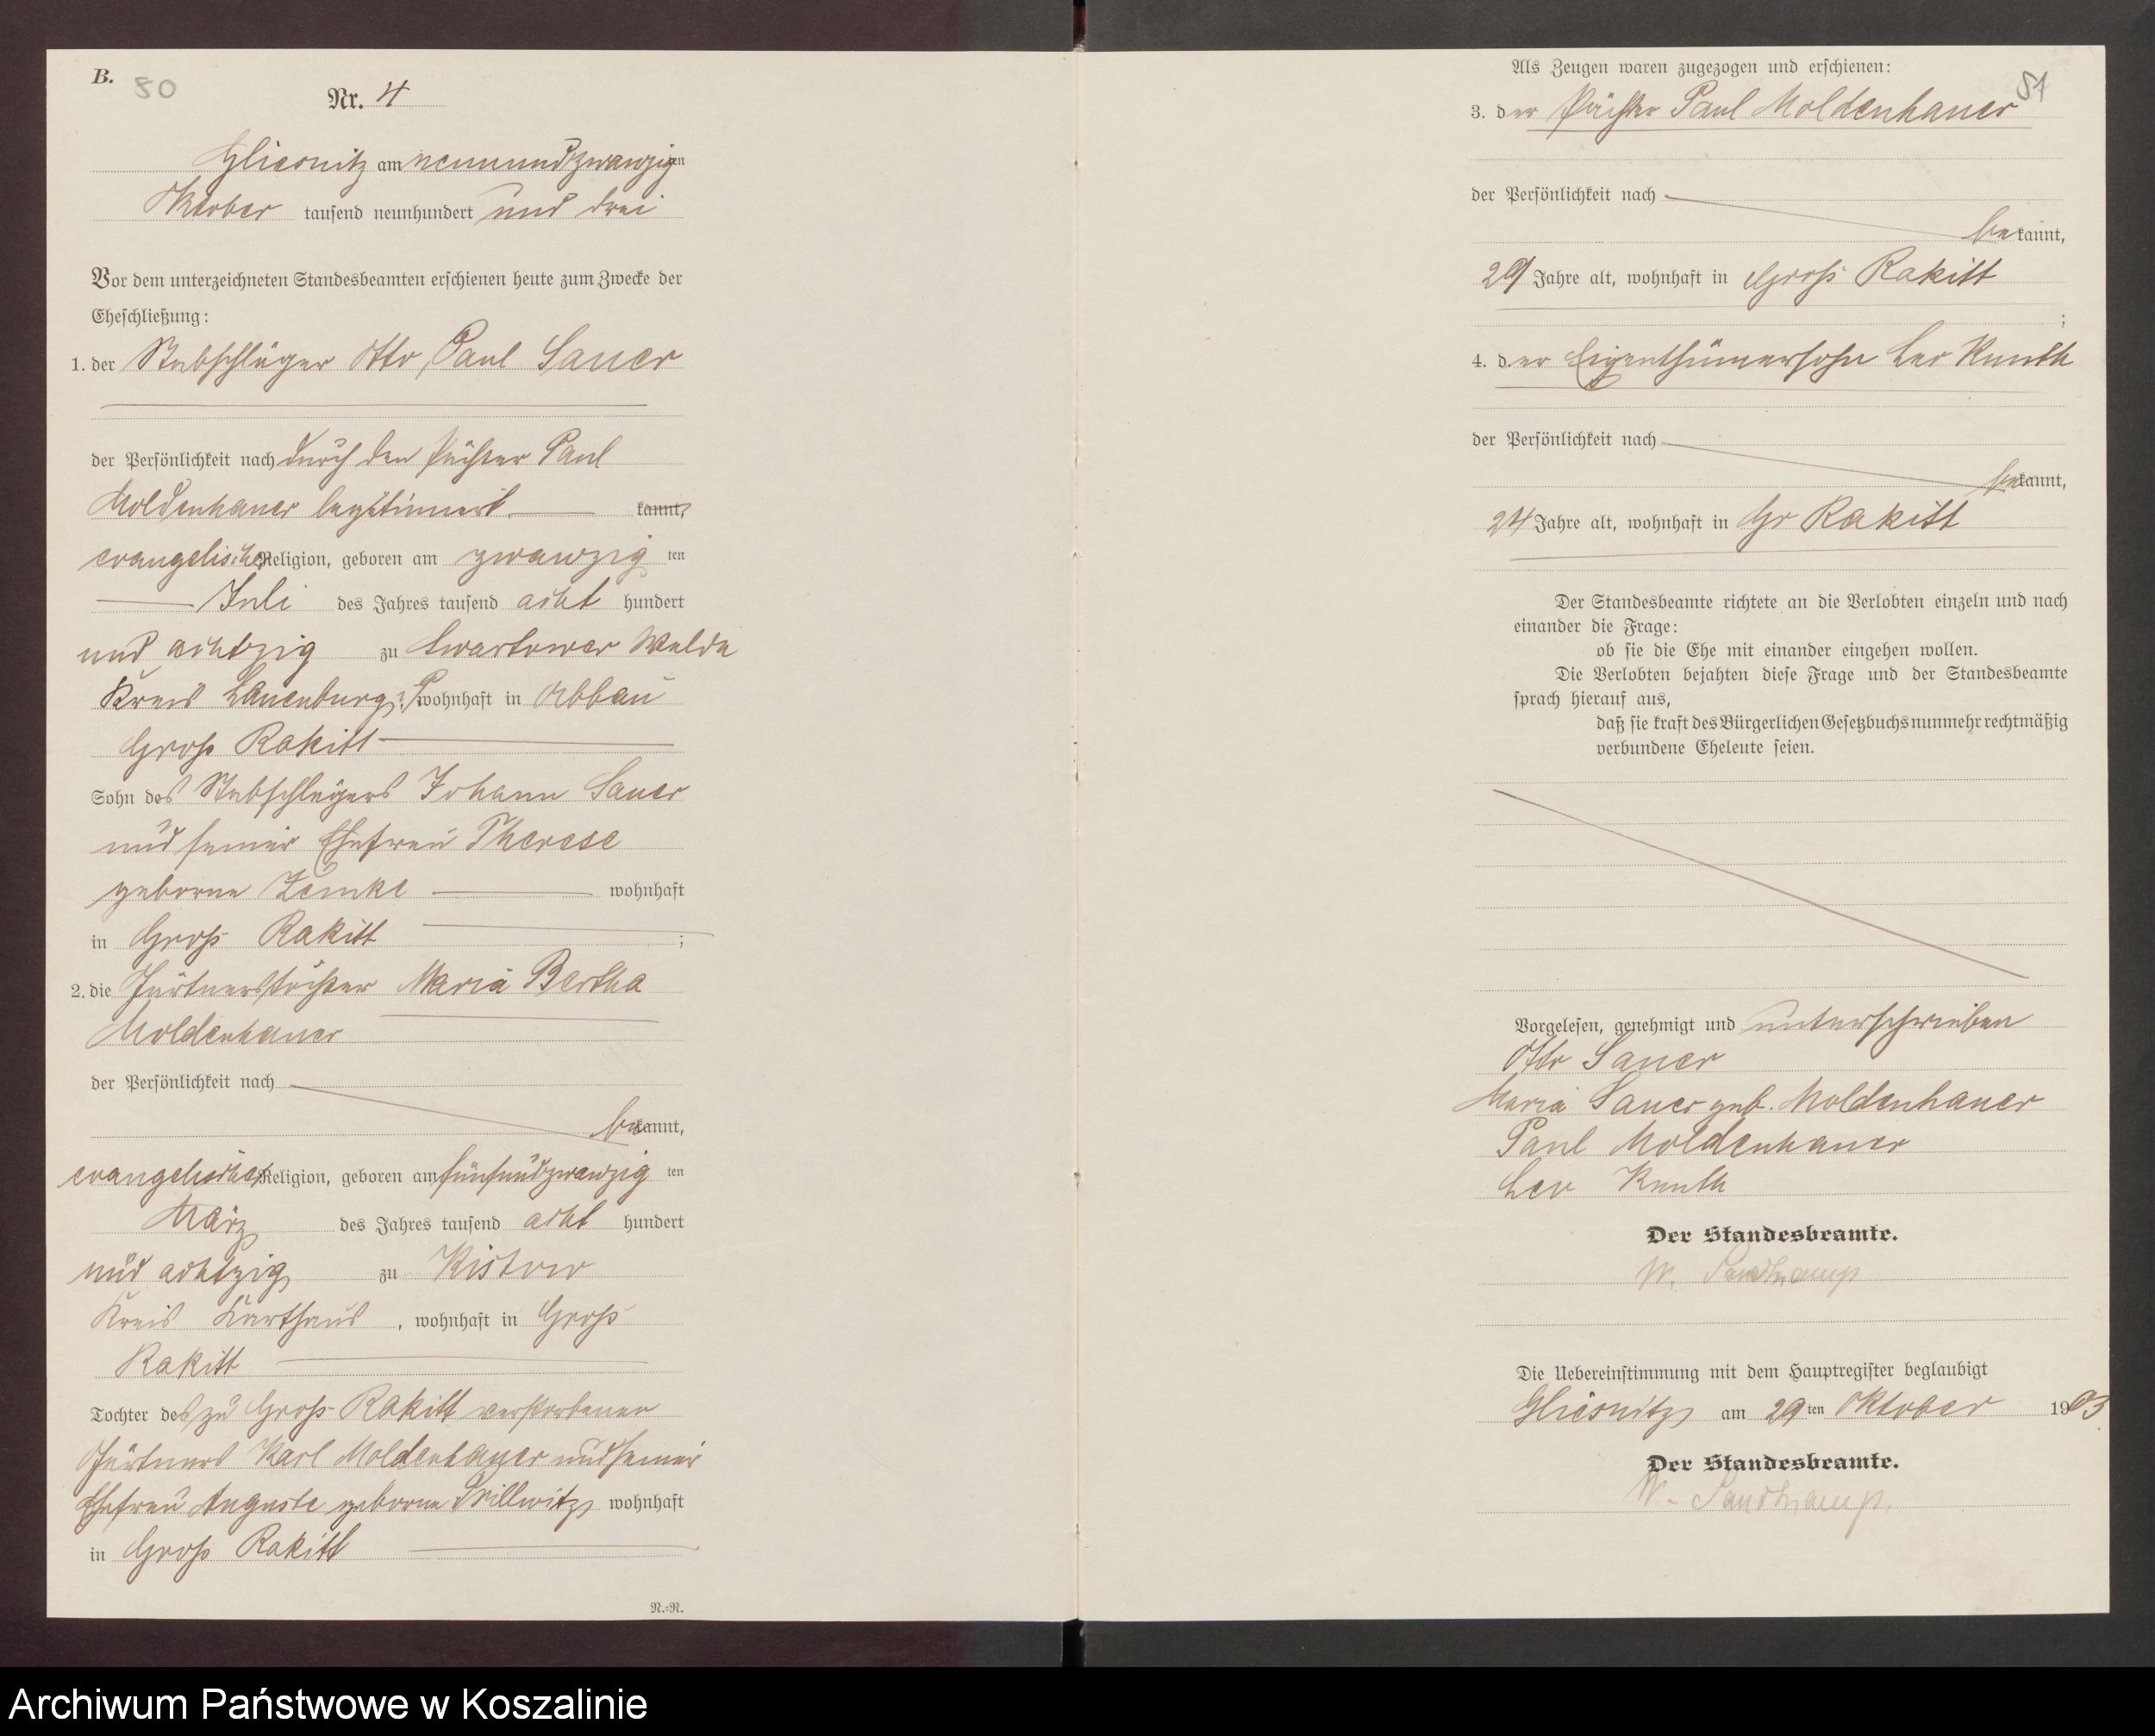 B.
80
Nr. 4
Gliesnitz am neunundzwanzigen
Oktober tausend neunhundert und drei
Vor dem unterzeichneten Standesbeamten erschienen heute zum Zwecke der
Eheschließung:
1. der Stabschläger Otto Paul Sauer
der Persönlichkeit nach durch den Pächter Paul
Moldenhauer legitimiert kannt,
evangelischer Religion, geboren am zwanzig ten
Juli des Jahres tausend acht hundert
und achtzig zu Swartower Walde
Kreis Lauenburg i. P wohnhaft in Abbau
Groß Rakitt
Sohn des Stabschlägers Johann Sauer
und seiner Ehefrau Therese
geborne Zemke wohnhaft
in Groß Rakitt ;
2. die Gärtnerstochter Maria Bertha
Moldenhauer
der Persönlichkeit nach
bekannt,
evangelischer Religion, geboren am fünfundzwanzig ten
März des Jahres tausend acht hundert
und achtzig zu Kistow
Kreis Karthaus , wohnhaft in Groß
Rakitt
Tochter des zu Groß Rakitt verstorbenen
Gärtners Karl Moldenhauer und seiner
Ehefrau Auguste geborne wohnhaft
in Groß Rakitt
N.=N.
Als Zeugen waren zugezogen und erschienen:
81
3. der Pächter Paul Moldenhauer
der Persönlichkeit nach
bekannt,
29 Jahre alt, wohnhaft in Groß Rakitt
;
4. der Eigenthümersohn Leo Kunth
der Persönlichkeit nach
bekannt,
24 Jahre alt, wohnhaft in Gr Rakitt
Der Standesbeamte richtete an die Verlobten einzeln und nach
einander die Frage:
ob sie die Ehe mit einander eingehen wollen.
Die Verlobten bejahten diese Frage und der Standesbeamte
sprach hierauf aus,
daß sie kraft des Bürgerlichen Gesetzbuchs nunmehr rechtmäßig
verbundene Eheleute seien.
Vorgelesen, genehmigt und unterschrieben
Otto Sauer
Maria Sauer geb. Moldenhauer
Paul Moldenhauer
Leo Kunth
Der Standesbeamte.
W. Sandkamp
Die Uebereinstimmung mit dem Hauptregister beglaubigt
Gliesnitz am 29 ten Oktober 1903
Der Standesbeamte.
W. Sandkamp.
Archiwum Państwowe w Koszalinie